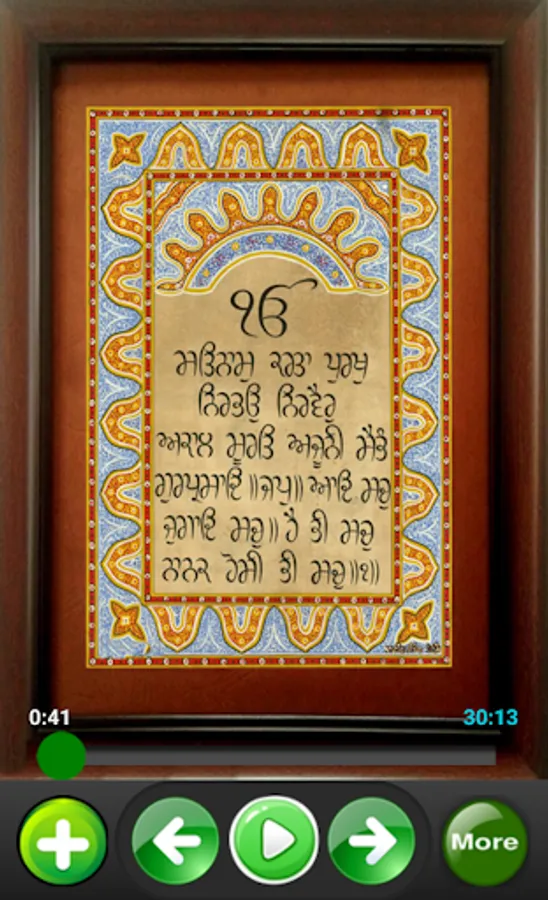 ੴ
ਸਤਿਨਾਮੁ ਕਰਤਾ ਪੁਰਖੁ
ਨਿਰਭਉ ਨਿਰਵੈਰੁ
ਅਕਾਲ ਮੂਰਤਿ ਅਜੂਨੀ ਸੈਭੰ
ਗੁਰਪ੍ਰਸਾਦਿ ॥ਜਪੁ॥ ਆਦਿ ਸਚੁ
ਜੁਗਾਦਿ ਸਚੁ॥ ਹੈ ਭੀ ਸਚੁ
ਨਾਨਕ ਹੋਸੀ ਭੀ ਸਚੁ॥੧॥
0:41 30:13
More